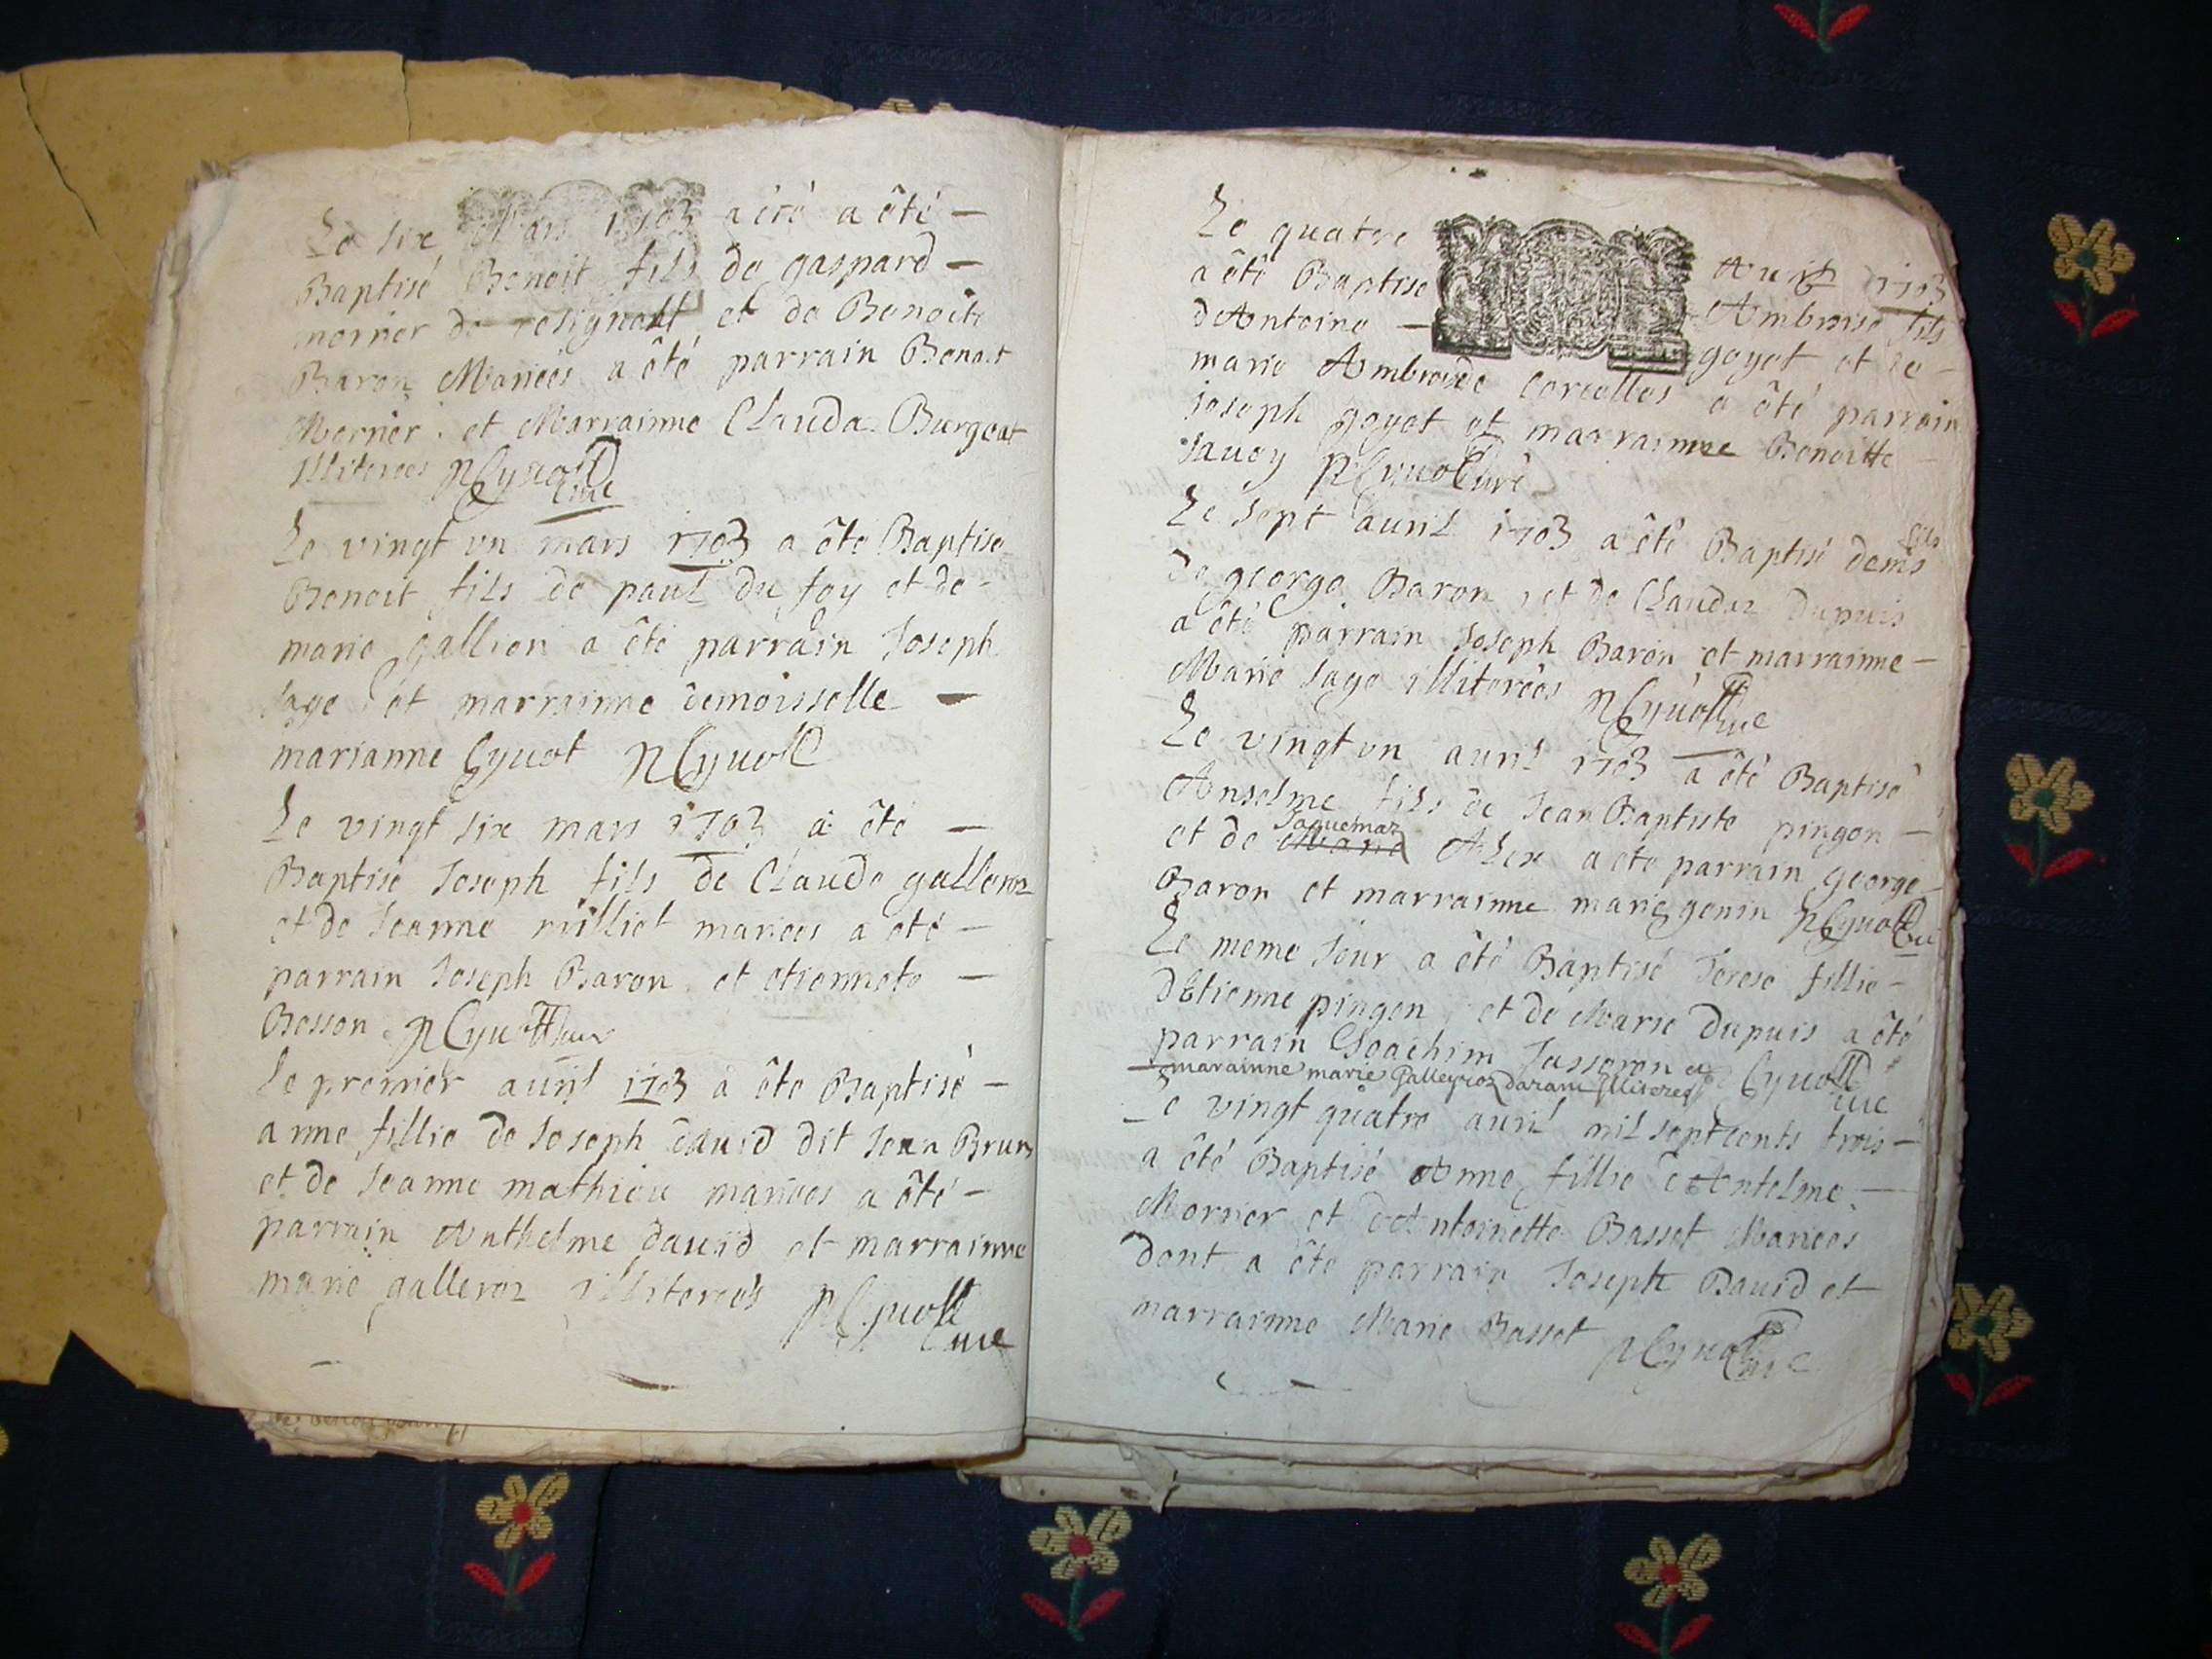 Le six Mars 1703 a été a été —
Baptisé Benoit fils de gaspard —
mornier de resignolt et de Benoite
Baron Mariées a été parrain Benoit
Mornier et Marrainne Clauda Burgeat
illiterees p Cyvott
cure
Le vingt un mars 1703 a été Baptise
Benoit fils de paul du foy et de -
marie gallion a été parrain Joseph
sage et marrainne demoisselle —
marianne Cyvot p Cyvott
Le vingt six mars 1703 a été —
Baptisé Joseph fils de Claude galleroz
et de Jeanne rulliet mariees a été —
parrain Joseph Baron et etiennete —
Bosson p Cyvott cure
Le premier auril 1703 a été Baptisé —
anne fillie de Joseph dauid dit Jean Brun
et de Jeanne mathieu mariees a été —
parrain Anthelme dauid et marrainne
marie galleroz illiterees p Cyvott
cure
Le quatre Auril 1703
a été Baptise Ambroise fils
d'Antoine — goyet et de —
marie Ambroise de Corcelles a été parrain
joseph goyet et marrainne Benoitte
sauey p Cyvott curé
Le sept auril 1703 a été Baptisé denis fils
de george Baron et de Clauda Dupuis
a été parrain Joseph Baron et marrainne —
Marie sage illiterées p Cyvott cure
Le vingt un auril 1703 a été Baptisé
Anselme fils de Jean Baptiste pingon —
Jaquemaz
et de Marie Alex a été parrain george
Baron et marrainne marie genin p Cyvott cu
Le meme Jour a été Baptisé Terese fillie —
d'Etienne pingon et de Marie Dupuis a été
parrain Joachim Jasseron et Cyvott
marainne marie Galleyroz illiterez cure
Le vingt quatre auril mil sept cents trois —
a été Baptisé Anne fillie d'Antelme —
Mornier et d'Antoinette Basset Mariees
dont a été parrain Joseph Dauid et
marrainne Marie Basset p Cyvott cure